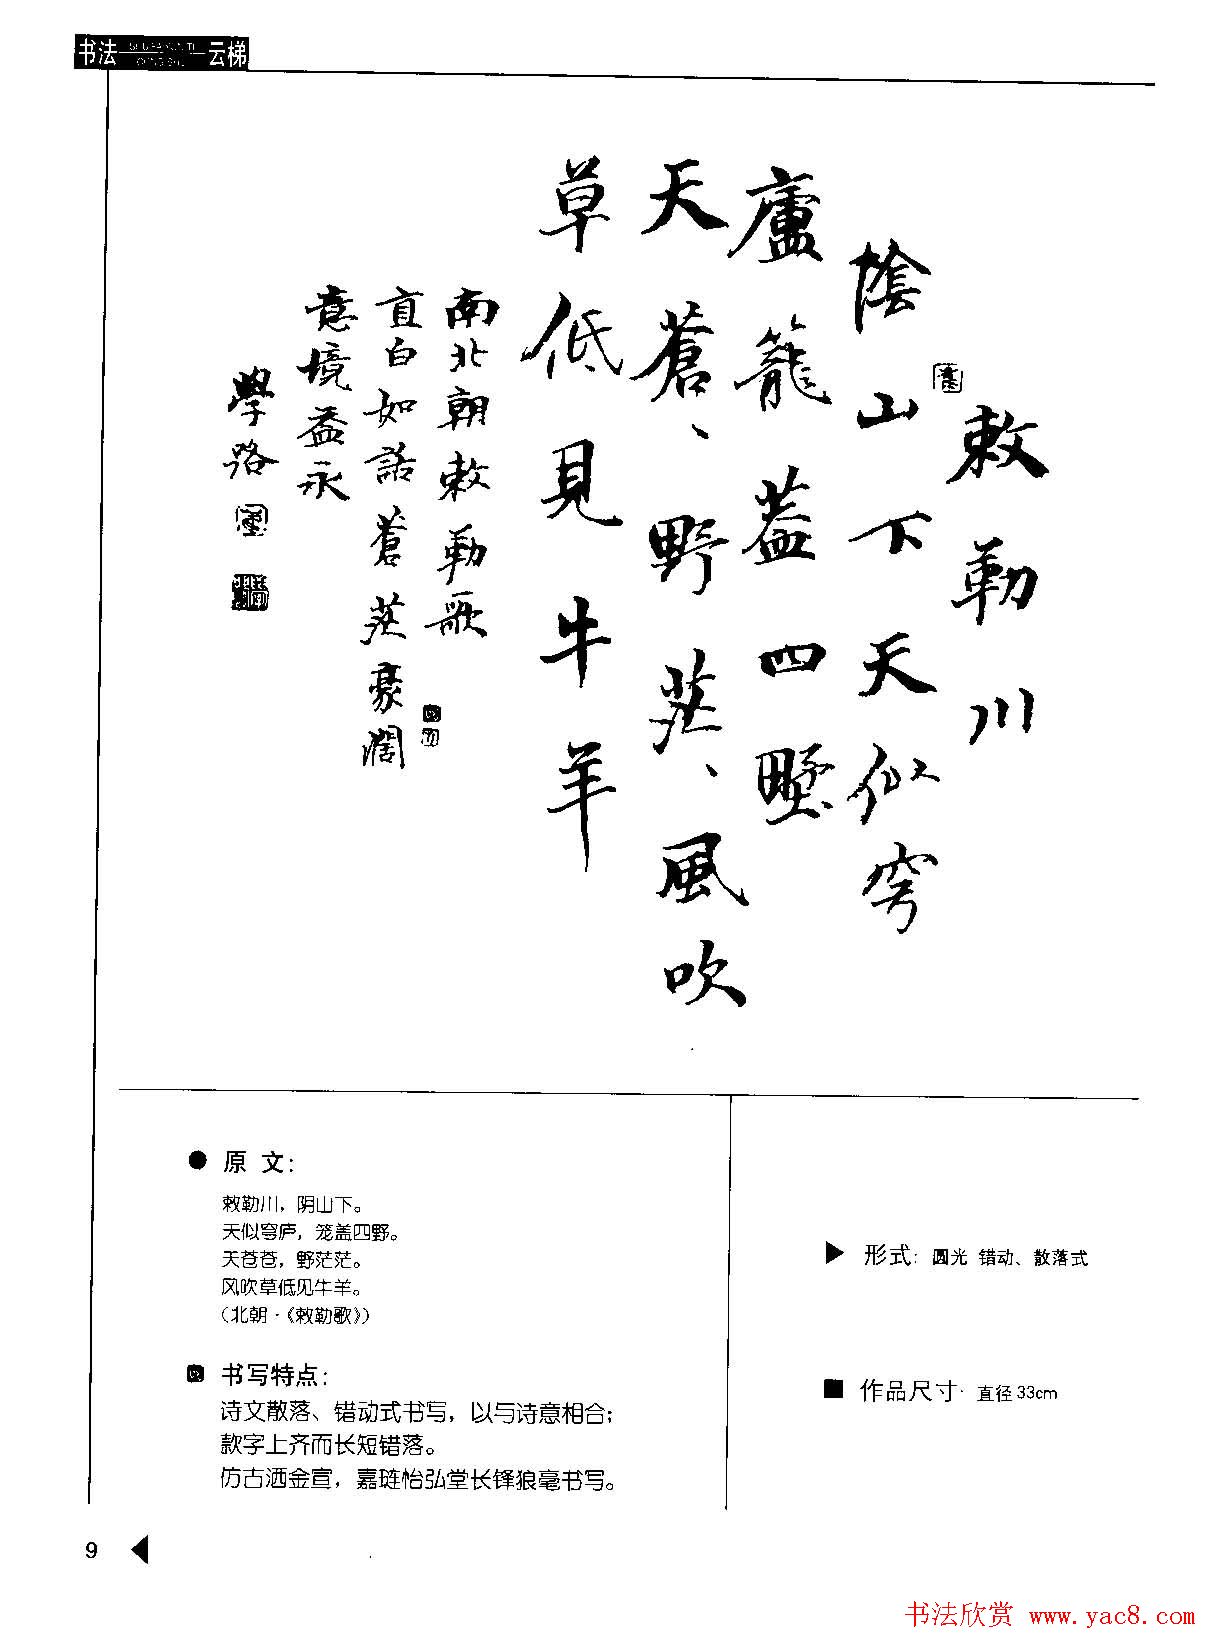 书法 云梯
敕勒川
陰山下天似穹
廬籠蓋四壄
天蒼、野茫、風吹
草低見牛羊
南北朝敕勒歌
直白如話蒼茫豪闊
意境益永
學路
● 原 文：
敕勒川，阴山下。
天似穹庐，笼盖四野。
天苍苍，野茫茫。
风吹草低见牛羊。
（北朝·《敕勒歌》）
书写特点：
诗文散落、错动式书写，以与诗意相合；
款字上齐而长短错落。
仿古洒金宣，嘉琏怡弘堂长锋狼毫书写。
▶ 形式：圆光 错动、散落式
■ 作品尺寸：直径33cm
9 ◀
书法欣赏 www.yac8.com